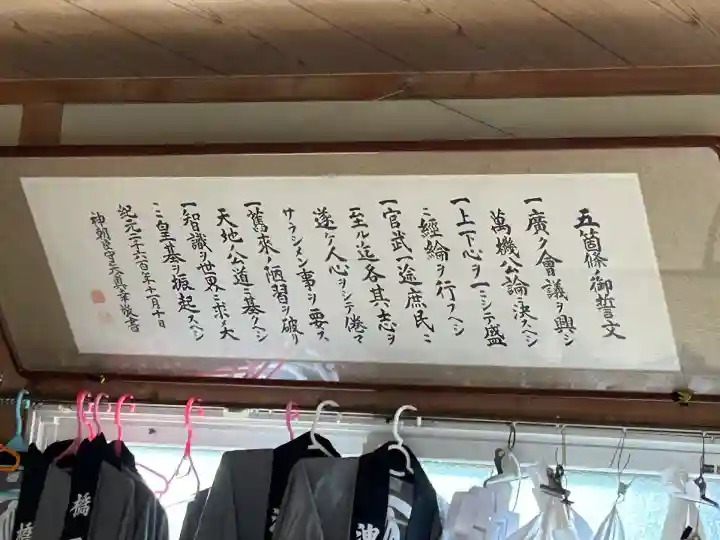 五箇條ノ御誓文
一廣ク會議ヲ興シ
萬機公論ニ決スヘシ
一上下心ヲ一ニシテ盛
ニ經綸ヲ行フヘシ
一官武一途庶民ニ
至ル迄各其ノ志ヲ
遂ケ人心ヲシテ倦マ
サラシメン事ヲ要ス
一舊來ノ陋習ヲ破リ
天地ノ公道ニ基クヘシ
一智識ヲ世界ニ求メ大
ニ皇基ヲ振起スヘシ
紀元二千六百年十一月十日
橋
橋